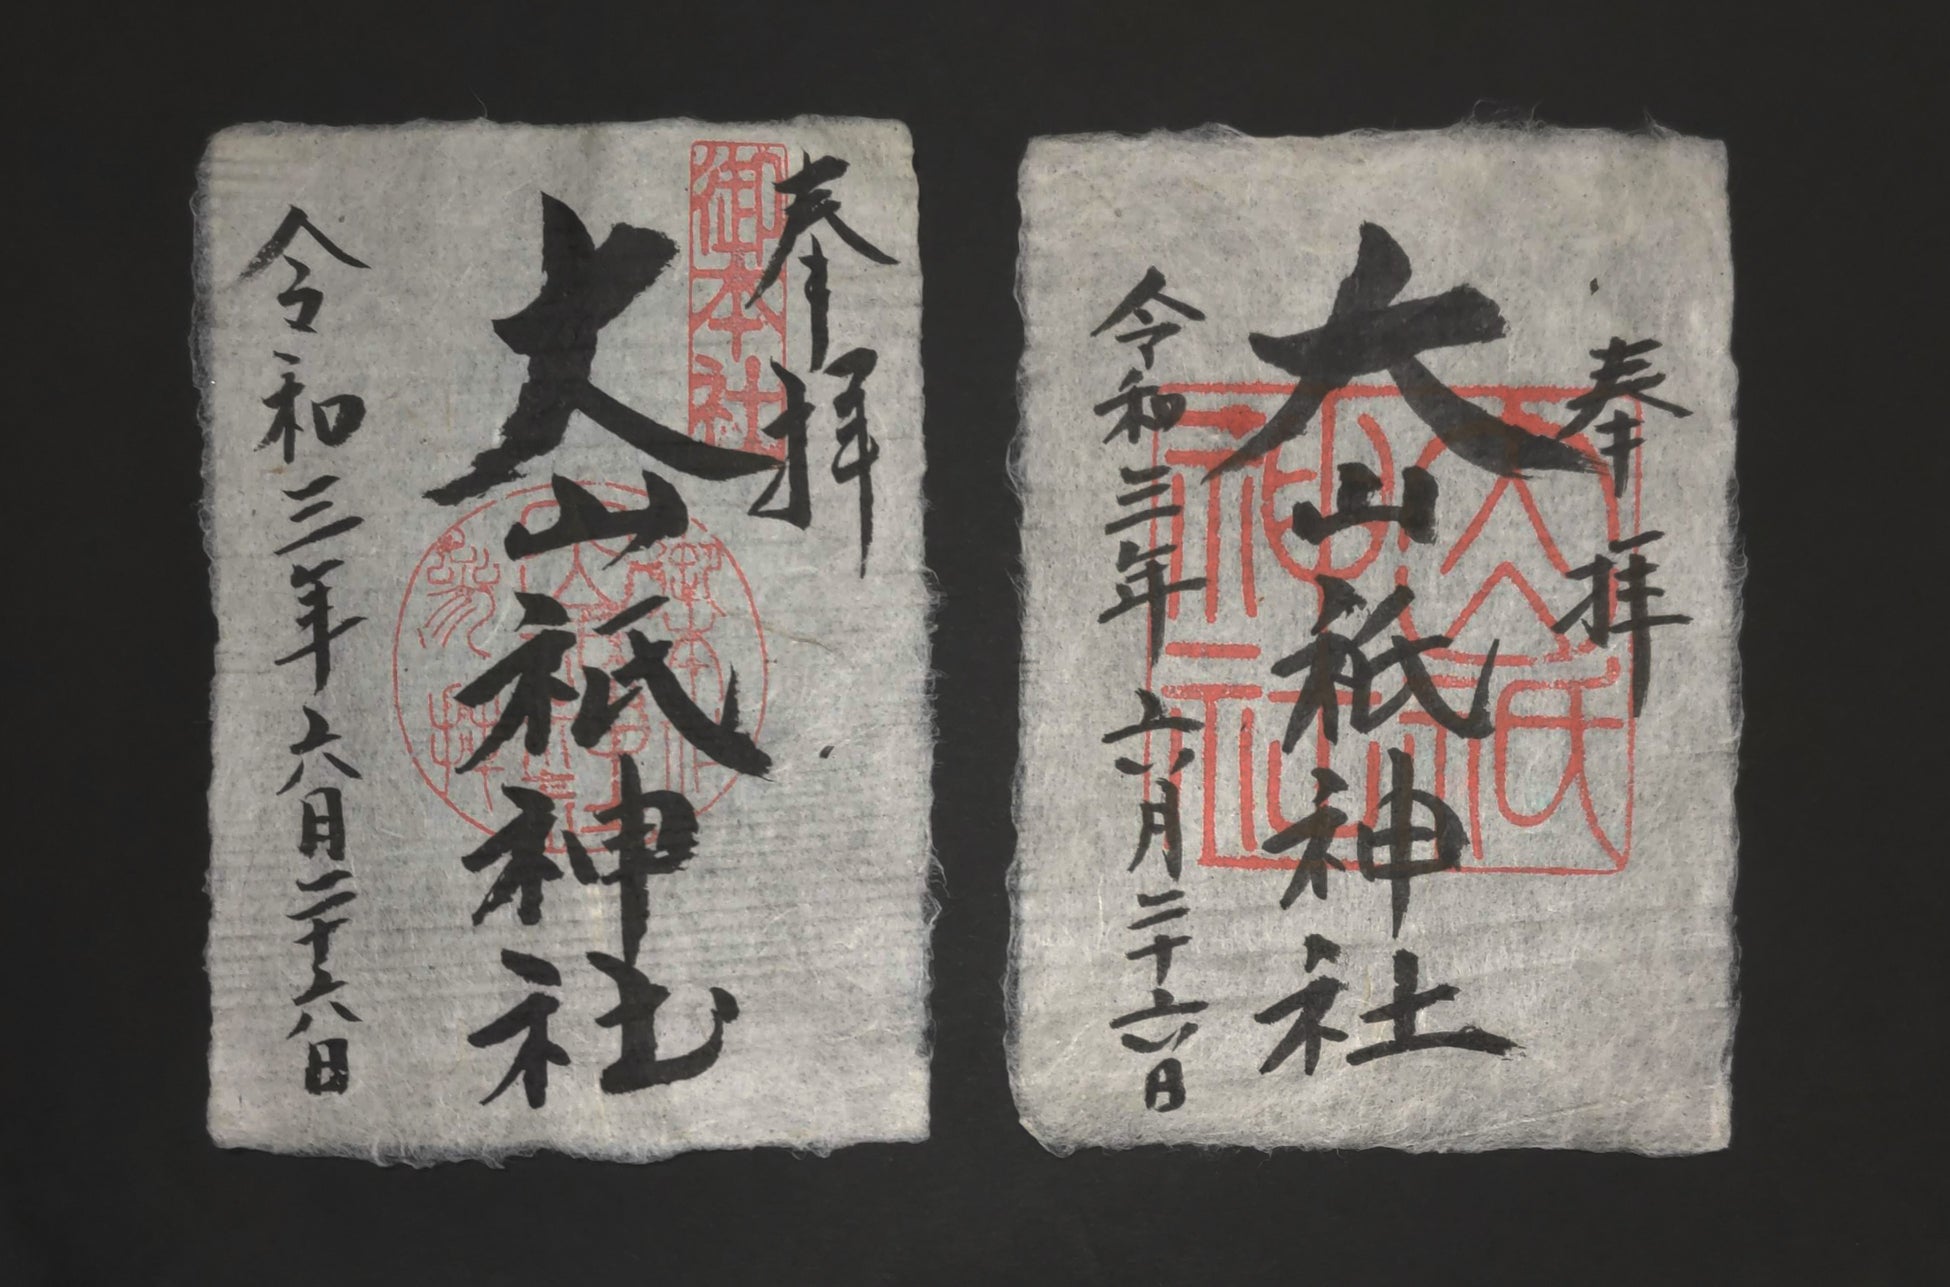 奉拝
大山祇神社
大山祇神社
令和三年六月二十六日
奉拝
御本社
大山祇神社
令和三年六月二十六日